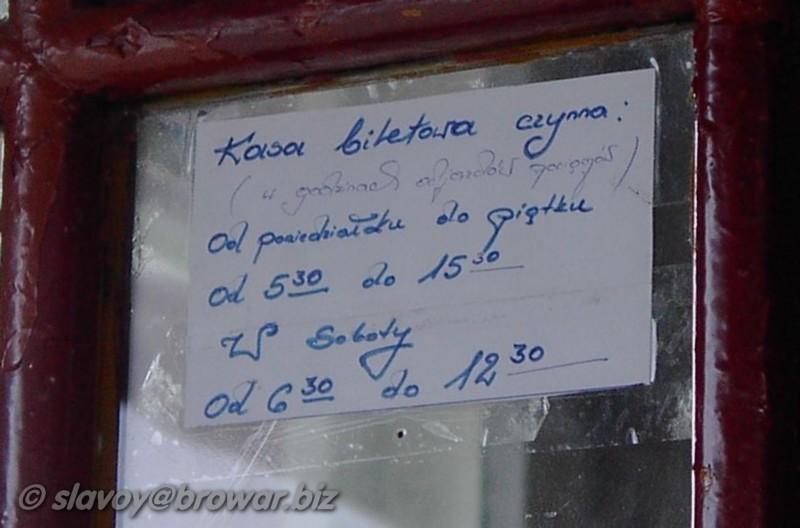 Kasa biletowa czynna:
(w godzinach odjazdów pociągów)
Od poniedziałku do piątku
Od 5 30 do 15 30
W Soboty
Od 6 30 do 12 30
© slavoy@browar.biz